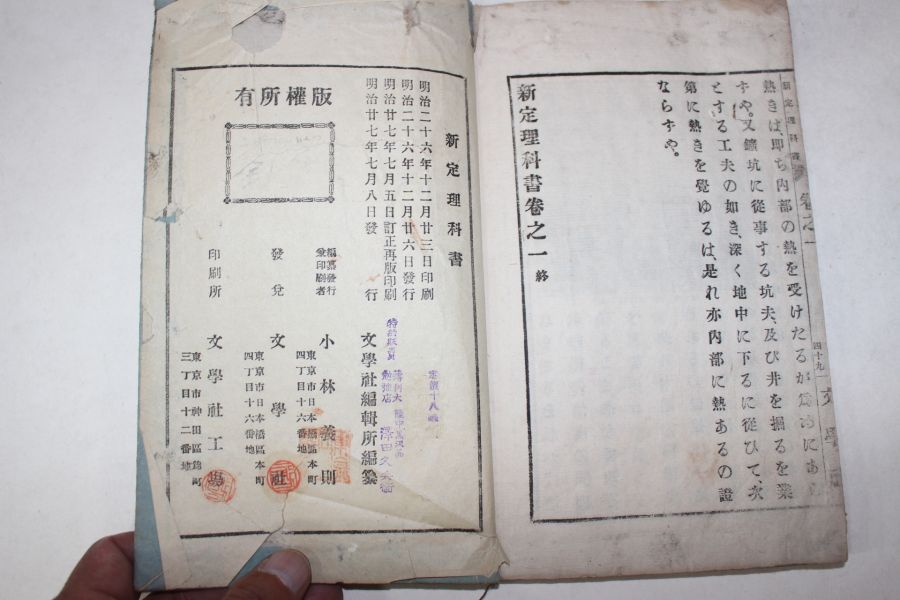 新定理科書 卷之一
四十九
文學
熱きは、即ち内部の熱を受けたるが爲めにあら
ずや。又鑛坑に從事する坑夫、及び井を掘るを業
とする工夫の如き、深く地中に下るに從ひて、次
第に熱きを覺ゆるは、是れ亦内部に熱あるの證
ならずや。
新定理科書卷之一 終
新定理科書
明治二十六年十二月廿三日印刷
明治二十六年十二月廿六日發行
明治廿七年七月五日訂正再版印刷
明治廿七年七月八日發行
版權所有
定價十八錢
文學社編輯所編纂
特約販賣
大
澤田久兵衞
編纂發行
兼印刷者
小林義則
東京市日本橋區本町
四丁目十六番地
發兌
文學社
東京市日本橋區本町
四丁目十六番地
印刷所
文學社工場
東京市神田區錦町
三丁目十二番地